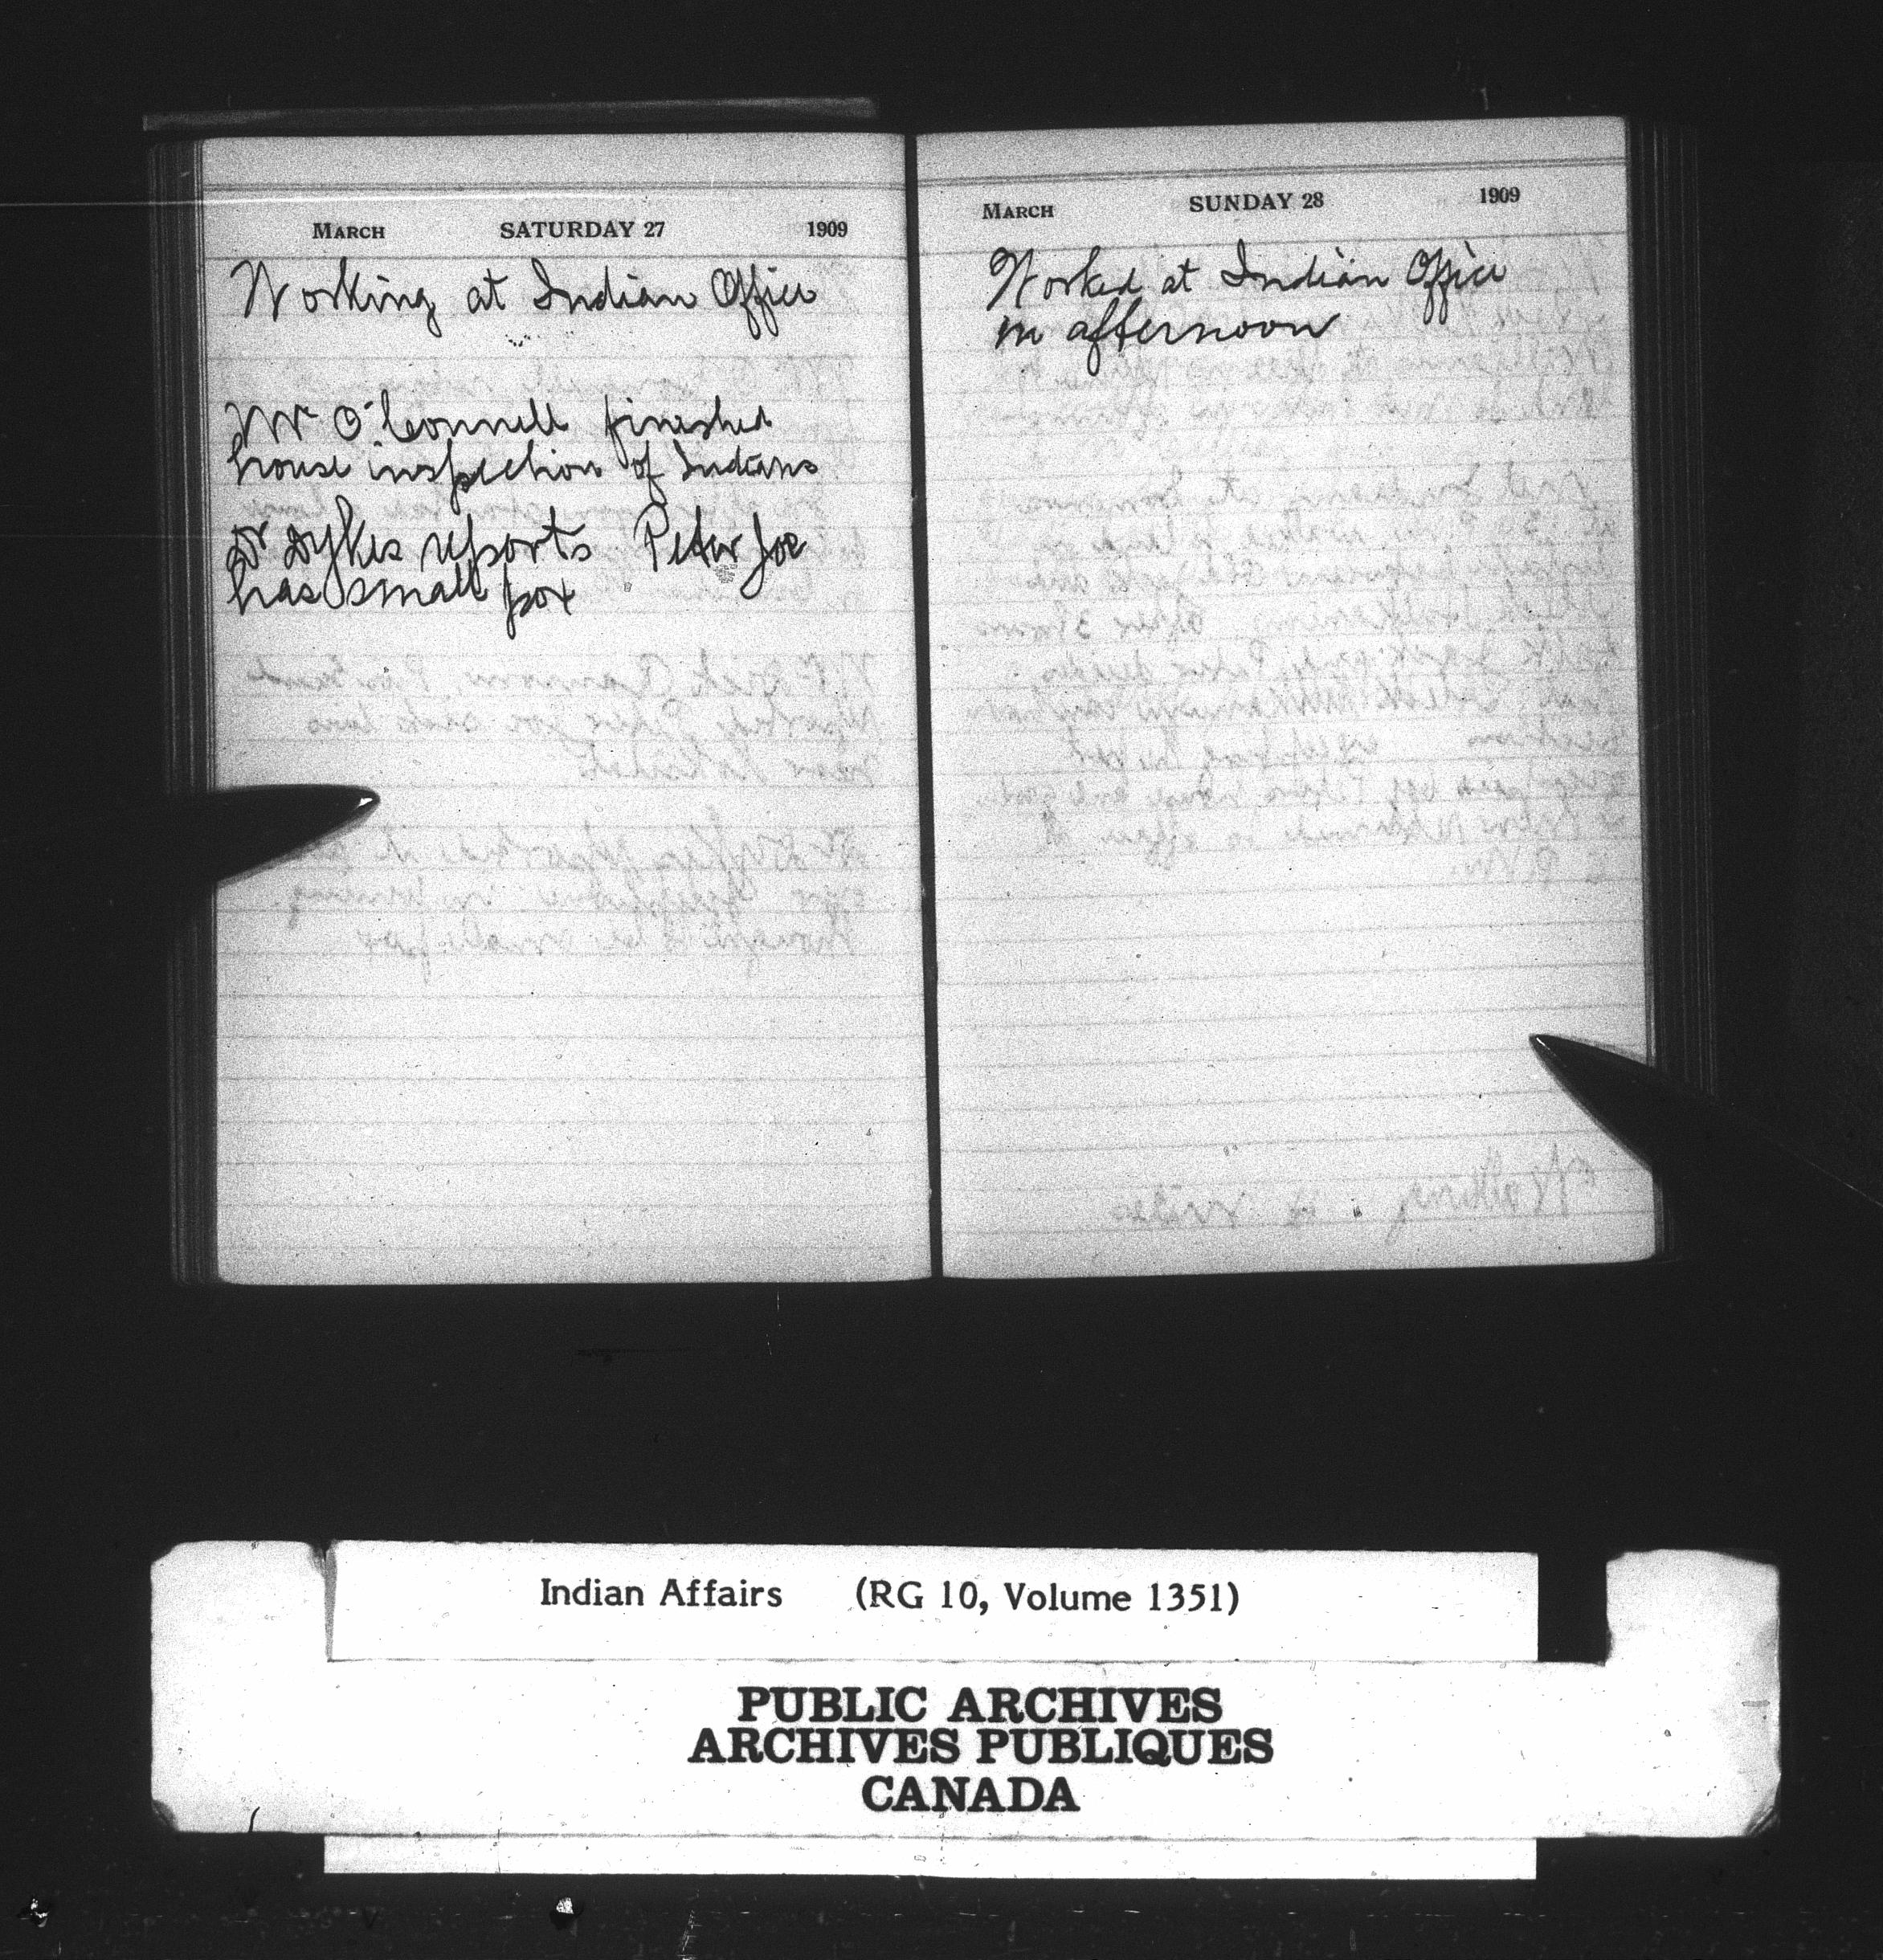 March SATURDAY 27 1909
Working at Indian Office
Mr O'Connell finished
house inspection of Indians
Dr Dykes reports Peter Joe
has small pox
March SUNDAY 28 1909
Worked at Indian Office
in afternoon
Indian Affairs (RG 10, Volume 1351)
PUBLIC ARCHIVES
ARCHIVES PUBLIQUES
CANADA